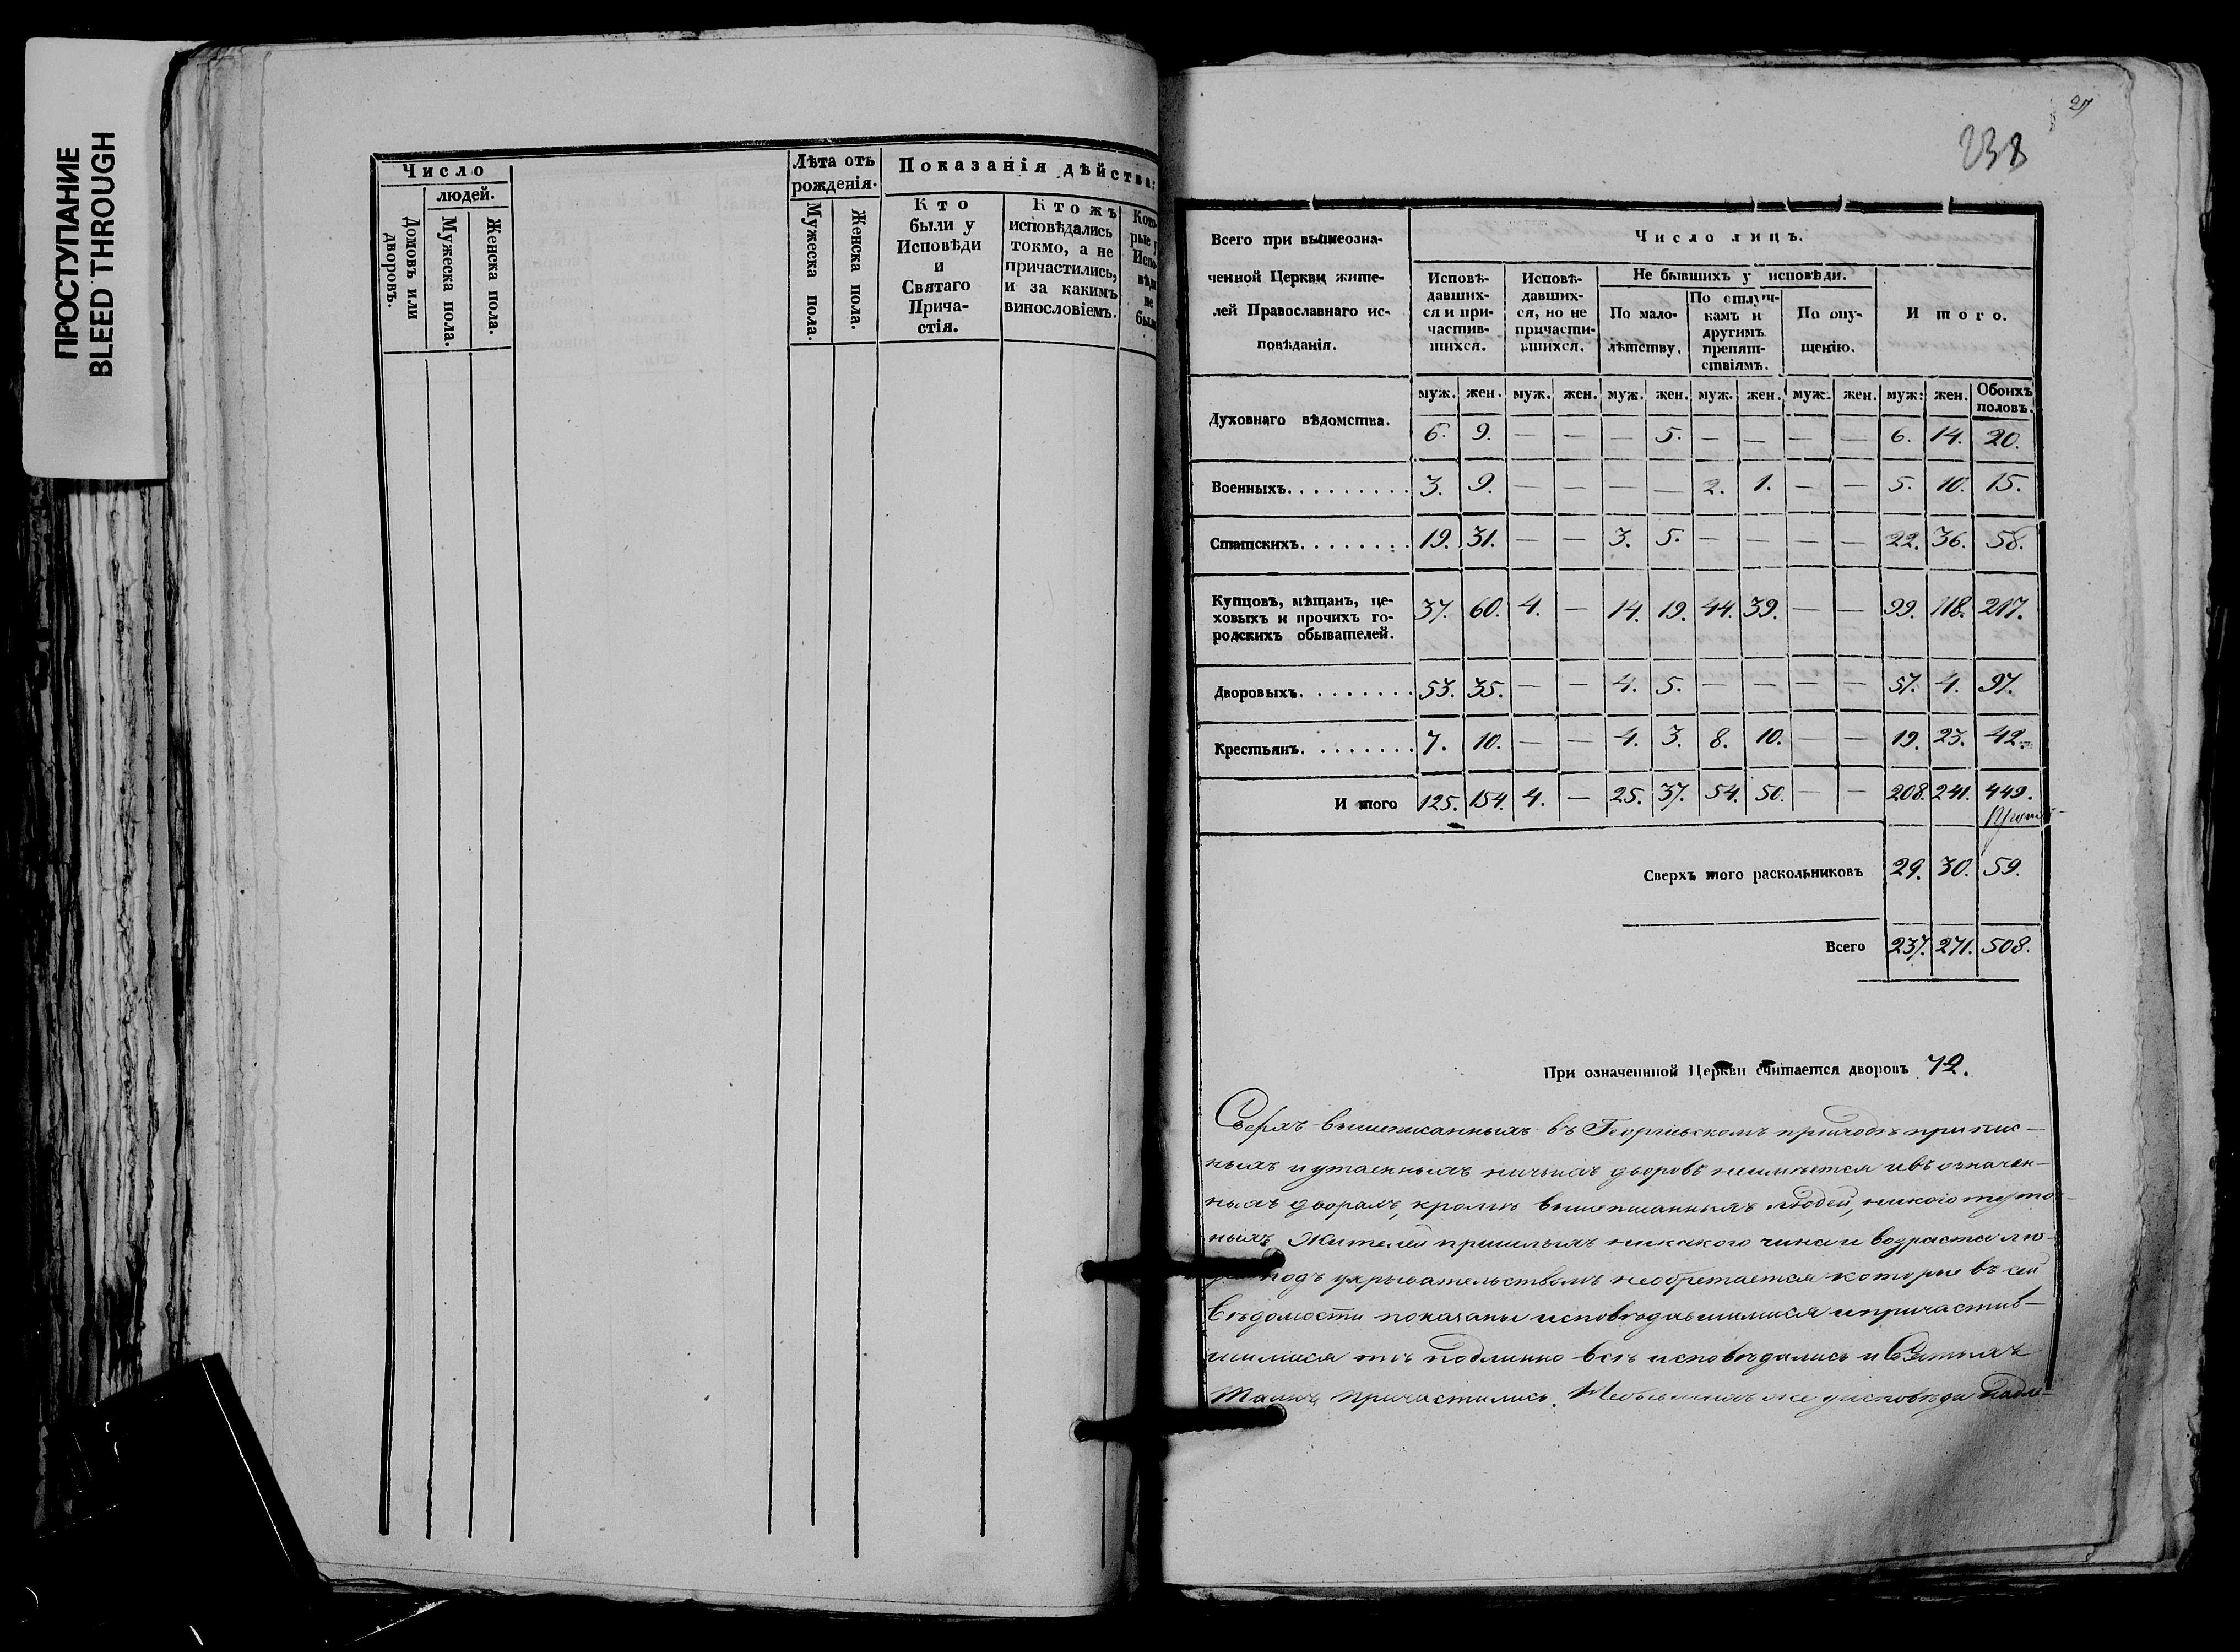 ПРОСТУПАНИЕ
BLEED THROUGH
Число
людей.
Домовъ или дворовъ.
Мужеска пола.
Женска пола.
Лѣта отъ
рожденія.
Мужеска пола.
Женска пола.
Показанія дѣйства:
Кто
были у
Исповѣди
и
Святаго
Прича-
стія.
Кто жъ
исповѣдались
токмо, а не
причастились,
и за какимъ
винословіемъ.
Кото-
рые у
Испо-
вѣди
не
были
27
238
Всего при вышеозна-
ченной Церкви жите-
лей Православнаго ис-
повѣданія.
Число лицъ.
Исповѣ-
давших-
ся и при-
частив-
шихся.
Исповѣ-
давших-
ся, но не
причасти-
вшихся.
Не бывшихъ у исповѣди.
По мало-
лѣтству.
По отлуч-
камъ и
другимъ
препят-
ствіямъ.
По опу-
щенію.
Итого.
муж. жен. муж. жен. муж. жен. муж. жен. муж. жен. муж: жен. Обоихъ половъ.
Духовнаго вѣдомства. 6. 9. — — — 5. — — — — 6. 14. 20.
Военныхъ......... 3. 9. — — — — 2. 1. — — 5. 10. 15.
Статскихъ........ 19. 31. — — 3. 5. — — — — 22. 36. 58.
Купцовъ, мѣщанъ, це-
ховыхъ и прочихъ го-
родскихъ обывателей. 37. 60. 4. — 14. 19. 44. 39. — — 99. 118. 217.
Дворовыхъ........ 53. 35. — — 4. 5. — — — — 57. 4. 97.
Крестьянъ........ 7. 10. — — 4. 3. 8. 10. — — 19. 23. 42.
Итого 125. 154. 4. — 25. 37. 54. 50. — — 208. 241. 449.
Сверхъ того раскольниковъ 29. 30. 59.
Всего 237. 271. 508.
При означеннной Церкви считается дворовъ 72.
Сверхъ вышеписанныхъ въ Георгіевскомъ приходѣ припис-
ныхъ и утаенныхъ ничьихъ дворовъ неимѣется и въ означен-
ныхъ дворахъ, кромѣ вышеписанныхъ людей, никого тутош-
ныхъ жителей пришлыхъ никакого чина и возраста лю-
подъ укрывательствомъ необретается которые въ сей
Вѣдомости показаны исповѣдавшимися и причастив-
шимися тѣ подлинно всѣ исповѣдались и Святыхъ
Таинъ причастились. Небывшихъ же у исповѣди надле-